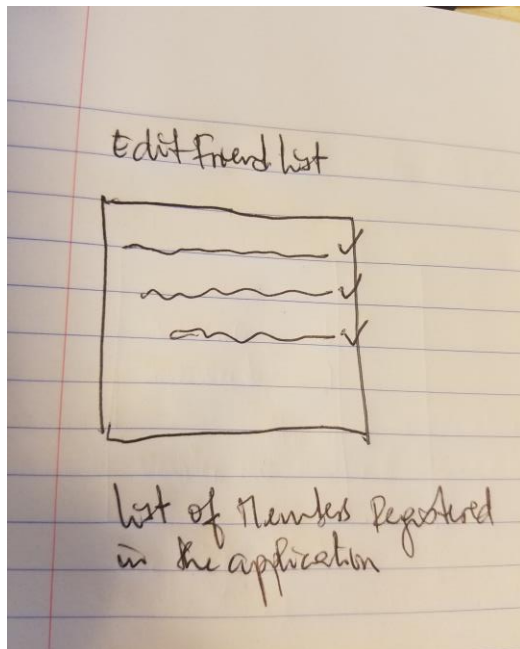 Edit Friend list
list of Members Registered
in the application